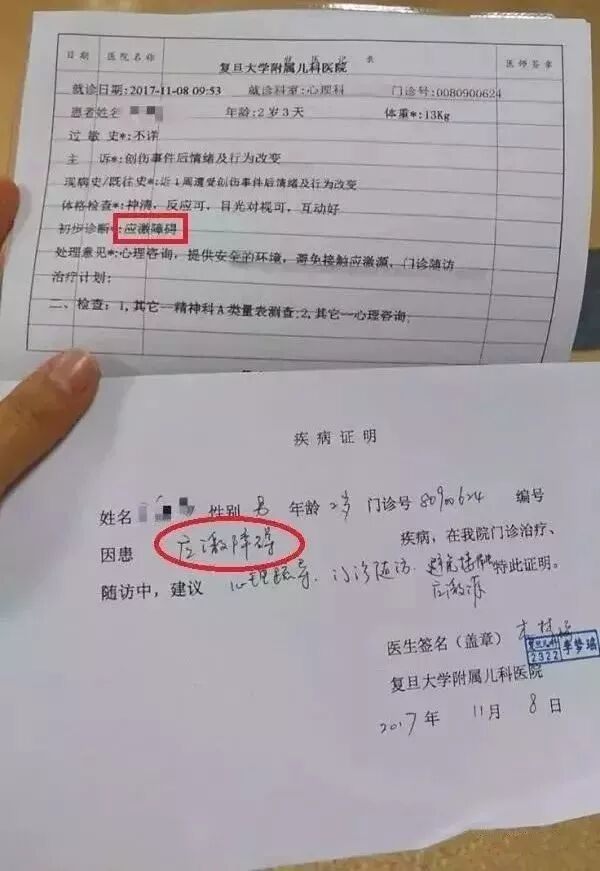 日期 医院名称 就医记录 医师签章
复旦大学附属儿科医院
就诊日期:2017-11-08 09:53 就诊科室:心理科 门诊号:0080900624
患者姓名 年龄:2岁3天 体重*:13Kg
过敏史*:不详
主诉*:创伤事件后情绪及行为改变
现病史/既往史*:近1周遭受创伤事件后情绪及行为改变
体格检查*:神清，反应可，目光对视可，互动好
初步诊断*:应激障碍
处理意见*:心理咨询，提供安全的环境，避免接触应激源，门诊随访
治疗计划:
二、检查:1,其它—精神科A类量表测查;2,其它—心理咨询;
疾病证明
姓名 性别 男 年龄 2岁 门诊号 80900624 编号
因患 应激障碍 疾病，在我院门诊治疗、
随访中，建议 心理疏导、门诊随访、避免接触 特此证明。
应激源
医生签名（盖章）
复旦儿科 2322 李梦瑶
复旦大学附属儿科医院
2017年 11月 8日